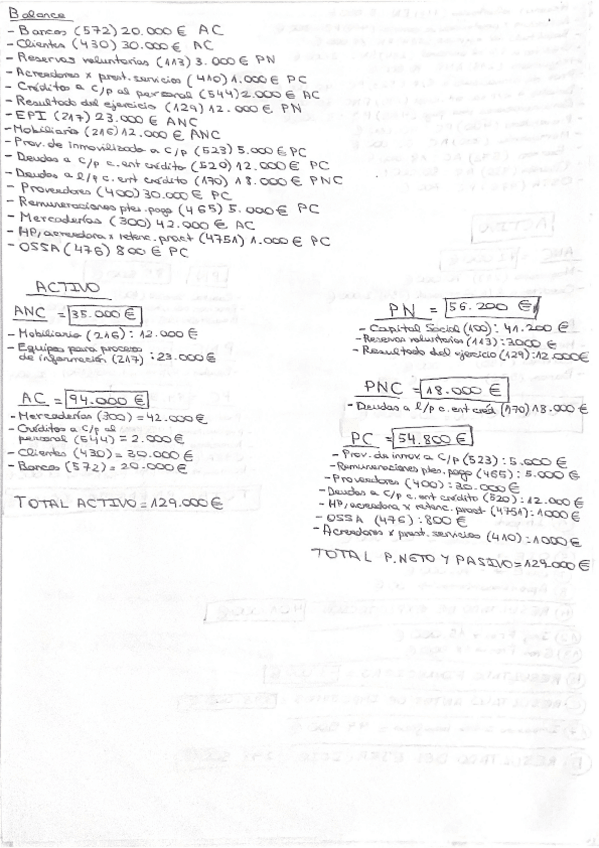 Balance
- Bancos (572) 20.000 € AC
- Clientes (430) 30.000 € AC
- Reservas voluntarias (113) 3.000 € PN
- Acreedores x prest. servicios (410) 1.000 € PC
- Créditos a c/p al personal (544) 2.000 € AC
- Resultado del ejercicio (129) 12.000 € PN
- EPI (217) 23.000 € ANC
- Mobiliario (216) 12.000 € ANC
- Prov. de inmovilizado a c/p (523) 5.000 € PC
- Deudas a c/p c. ent crédito (520) 12.000 € PC
- Deudas a l/p c. ent crédito (170) 18.000 € PNC
- Proveedores (400) 30.000 € PC
- Remuneraciones ptes. pago (465) 5.000 € PC
- Mercaderías (300) 42.000 € AC
- HP, acreedora x retenc. pract (4751) 1.000 € PC
- OSSA (476) 800 € PC
ACTIVO
ANC = 35.000 €
- Mobiliario (216): 12.000 €
- Equipos para proceso
de información (217): 23.000 €
AC = 94.000 €
- Mercaderías (300) = 42.000 €
- Créditos a c/p al
personal (544) = 2.000 €
- Clientes (430) = 30.000 €
- Bancos (572) = 20.000 €
TOTAL ACTIVO = 129.000 €
PN = 56.200 €
- Capital Social (100): 41.200 €
- Reservas voluntarias (113): 3000 €
- Resultado del ejercicio (129): 12.000 €
PNC = 18.000 €
- Deudas a l/p c. ent créd (170) 18.000 €
PC = 54.800 €
- Prov. de inmov. a c/p (523): 5.000 €
- Remuneraciones ptes. pago (465): 5.000 €
- Proveedores (400): 30.000 €
- Deudas a c/p c. ent crédito (520): 12.000 €
- HP, acreedora x retenc. pract (4751): 1000 €
- OSSA (476): 800 €
- Acreedores x prest. servicios (410): 1000 €
TOTAL P. NETO Y PASIVO = 129.000 €